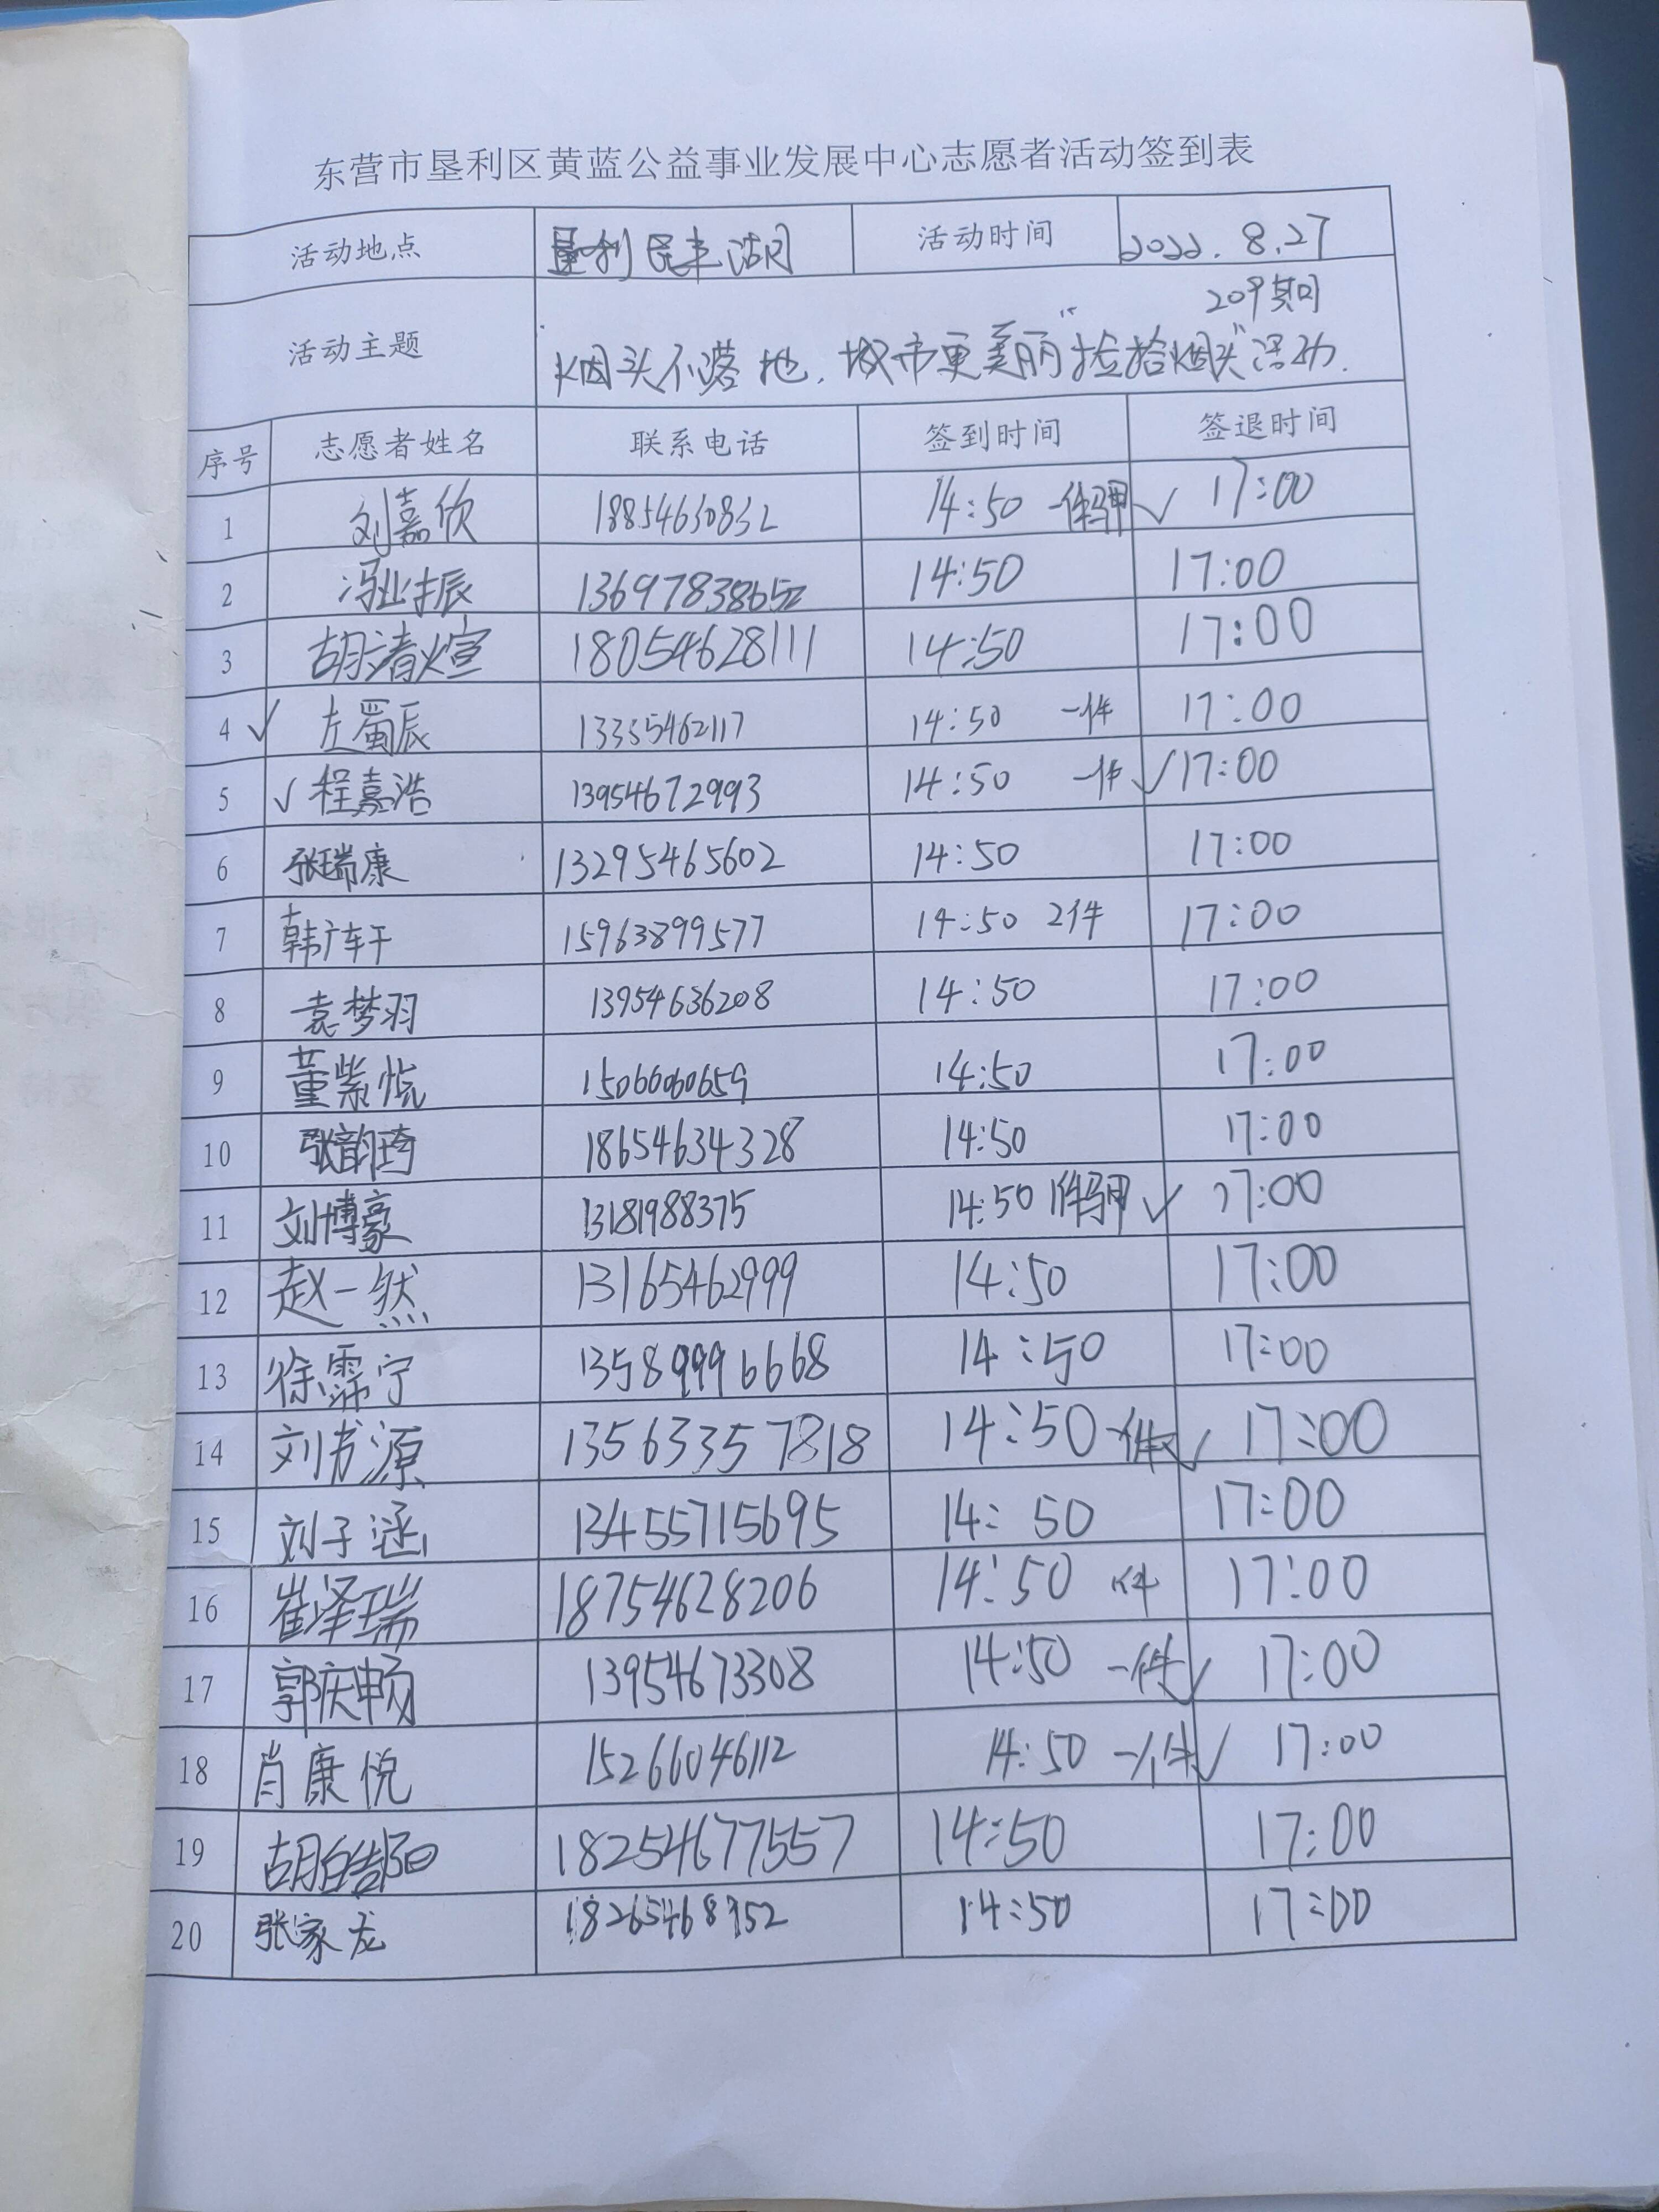 东营市垦利区黄蓝公益事业发展中心志愿者活动签到表
活动地点 垦利民丰湖 活动时间 2022.8.27
209期
活动主题 烟头不落地,城市更美丽"捡拾烟头"活动.
序号 志愿者姓名 联系电话 签到时间 签退时间
1 刘嘉欣 18854630832 14:50 一件马甲 ✓ 17:00
2 冯业振 13697838652 14:50 17:00
3 胡清煊 18054628111 14:50 17:00
4 ✓ 左蜀辰 13335462117 14:50 一件 17:00
5 ✓ 程嘉浩 13954672993 14:50 一件 ✓ 17:00
6 张瑞康 13295465602 14:50 17:00
7 韩广轩 15963899577 14:50 2件 17:00
8 袁梦羽 13954636208 14:50 17:00
9 董紫悦 15066060659 14:50 17:00
10 张韵琦 18654634328 14:50 17:00
11 刘博豪 13181988375 14:50 1件马甲 ✓ 17:00
12 赵一然 13165462999 14:50 17:00
13 徐霈宁 13589996668 14:50 17:00
14 刘书源 13563357818 14:50 一件 ✓ 17:00
15 刘子涵 13455715695 14:50 17:00
16 崔泽瑞 18754628206 14:50 17:00
17 郭庆畅 13954673308 14:50 一件 ✓ 17:00
18 肖康悦 15266046112 14:50 一件 ✓ 17:00
19 胡皓阳 18254677557 14:50 17:00
20 张家龙 14:50 17:00